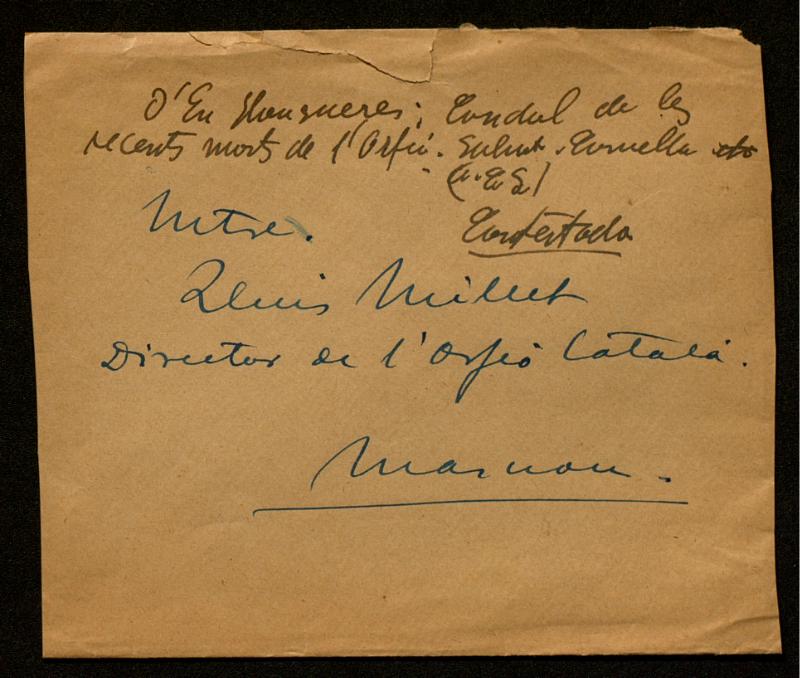 D'En Llongueres; Condol de les
recents morts de l'Orfeó. Salvat. Comella etc
(a. C. S.)
Contestada
Mtre.
Lluis Millet
Director de l'Orfeó Català.
Masnou.